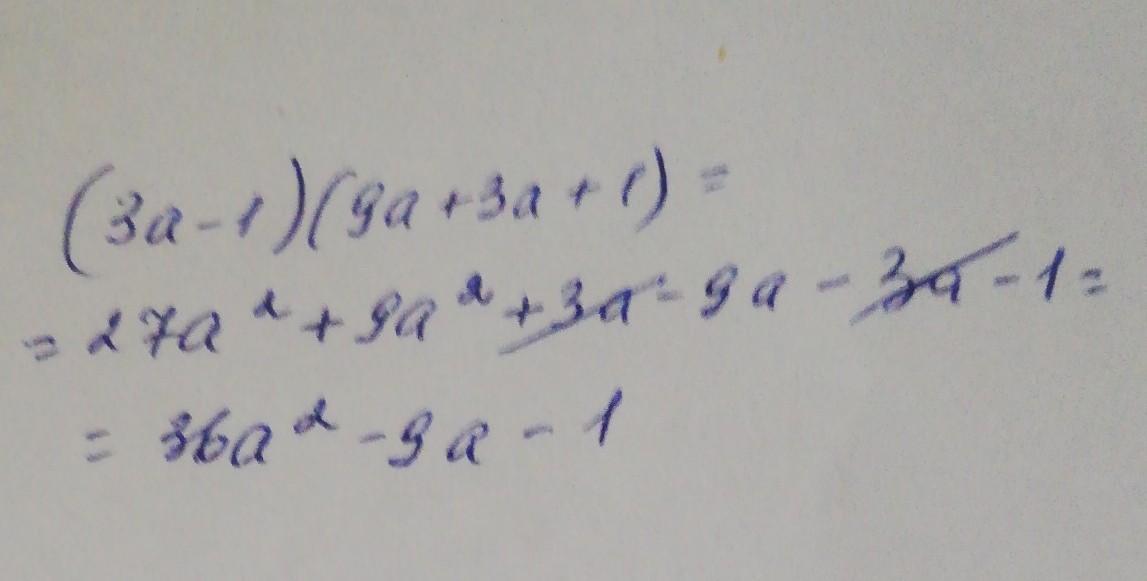 (3a-1)(9a+3a+1)=
=27a²+9a²+3a-9a-3a-1=
=36a²-9a-1